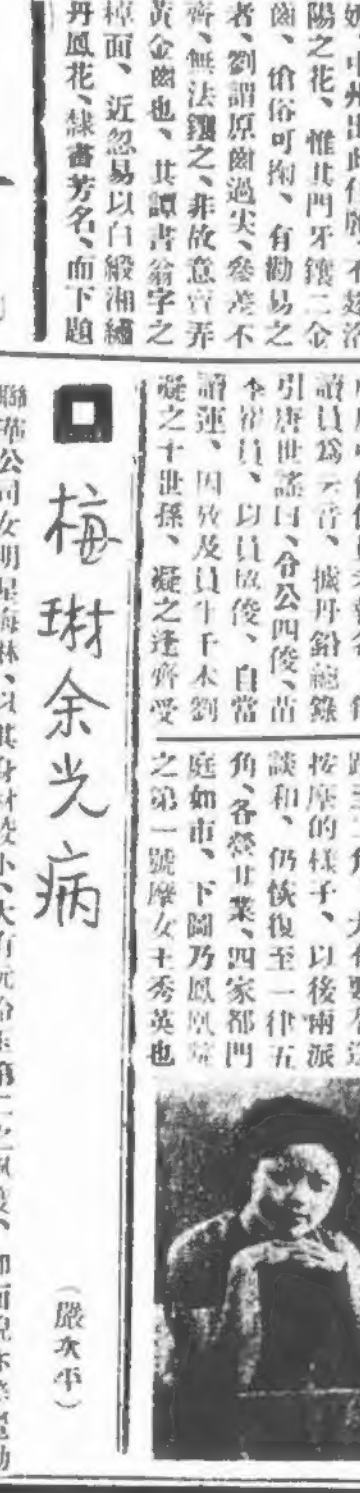 陽之花、惟其門牙鑲二金
齒、傖俗可掬、有勸易之
者、劉謂原齒過尖、參差不
齊、無法鑲之、非故意賣弄
黃金齒也、其譚書翁字之
樟面、近忽易以白緞湘繡
丹鳳花、隸書芳名、而下題
讀員爲云音、據丹鉛總錄
引唐世謠曰、令公四俊、苗
李崔員、以員協俊、自當
讀運、因攷及員半千本劉
凝之十世孫、凝之逢齊受
按摩的樣子、以後兩派
談和、仍恢復至一律五
角、各營廿業、四家都門
庭如市、下圖乃鳳凰
之第一號摩女王秀英也
梅琳余光病
(嚴次平)
聯華公司女明星梅林、以其身材